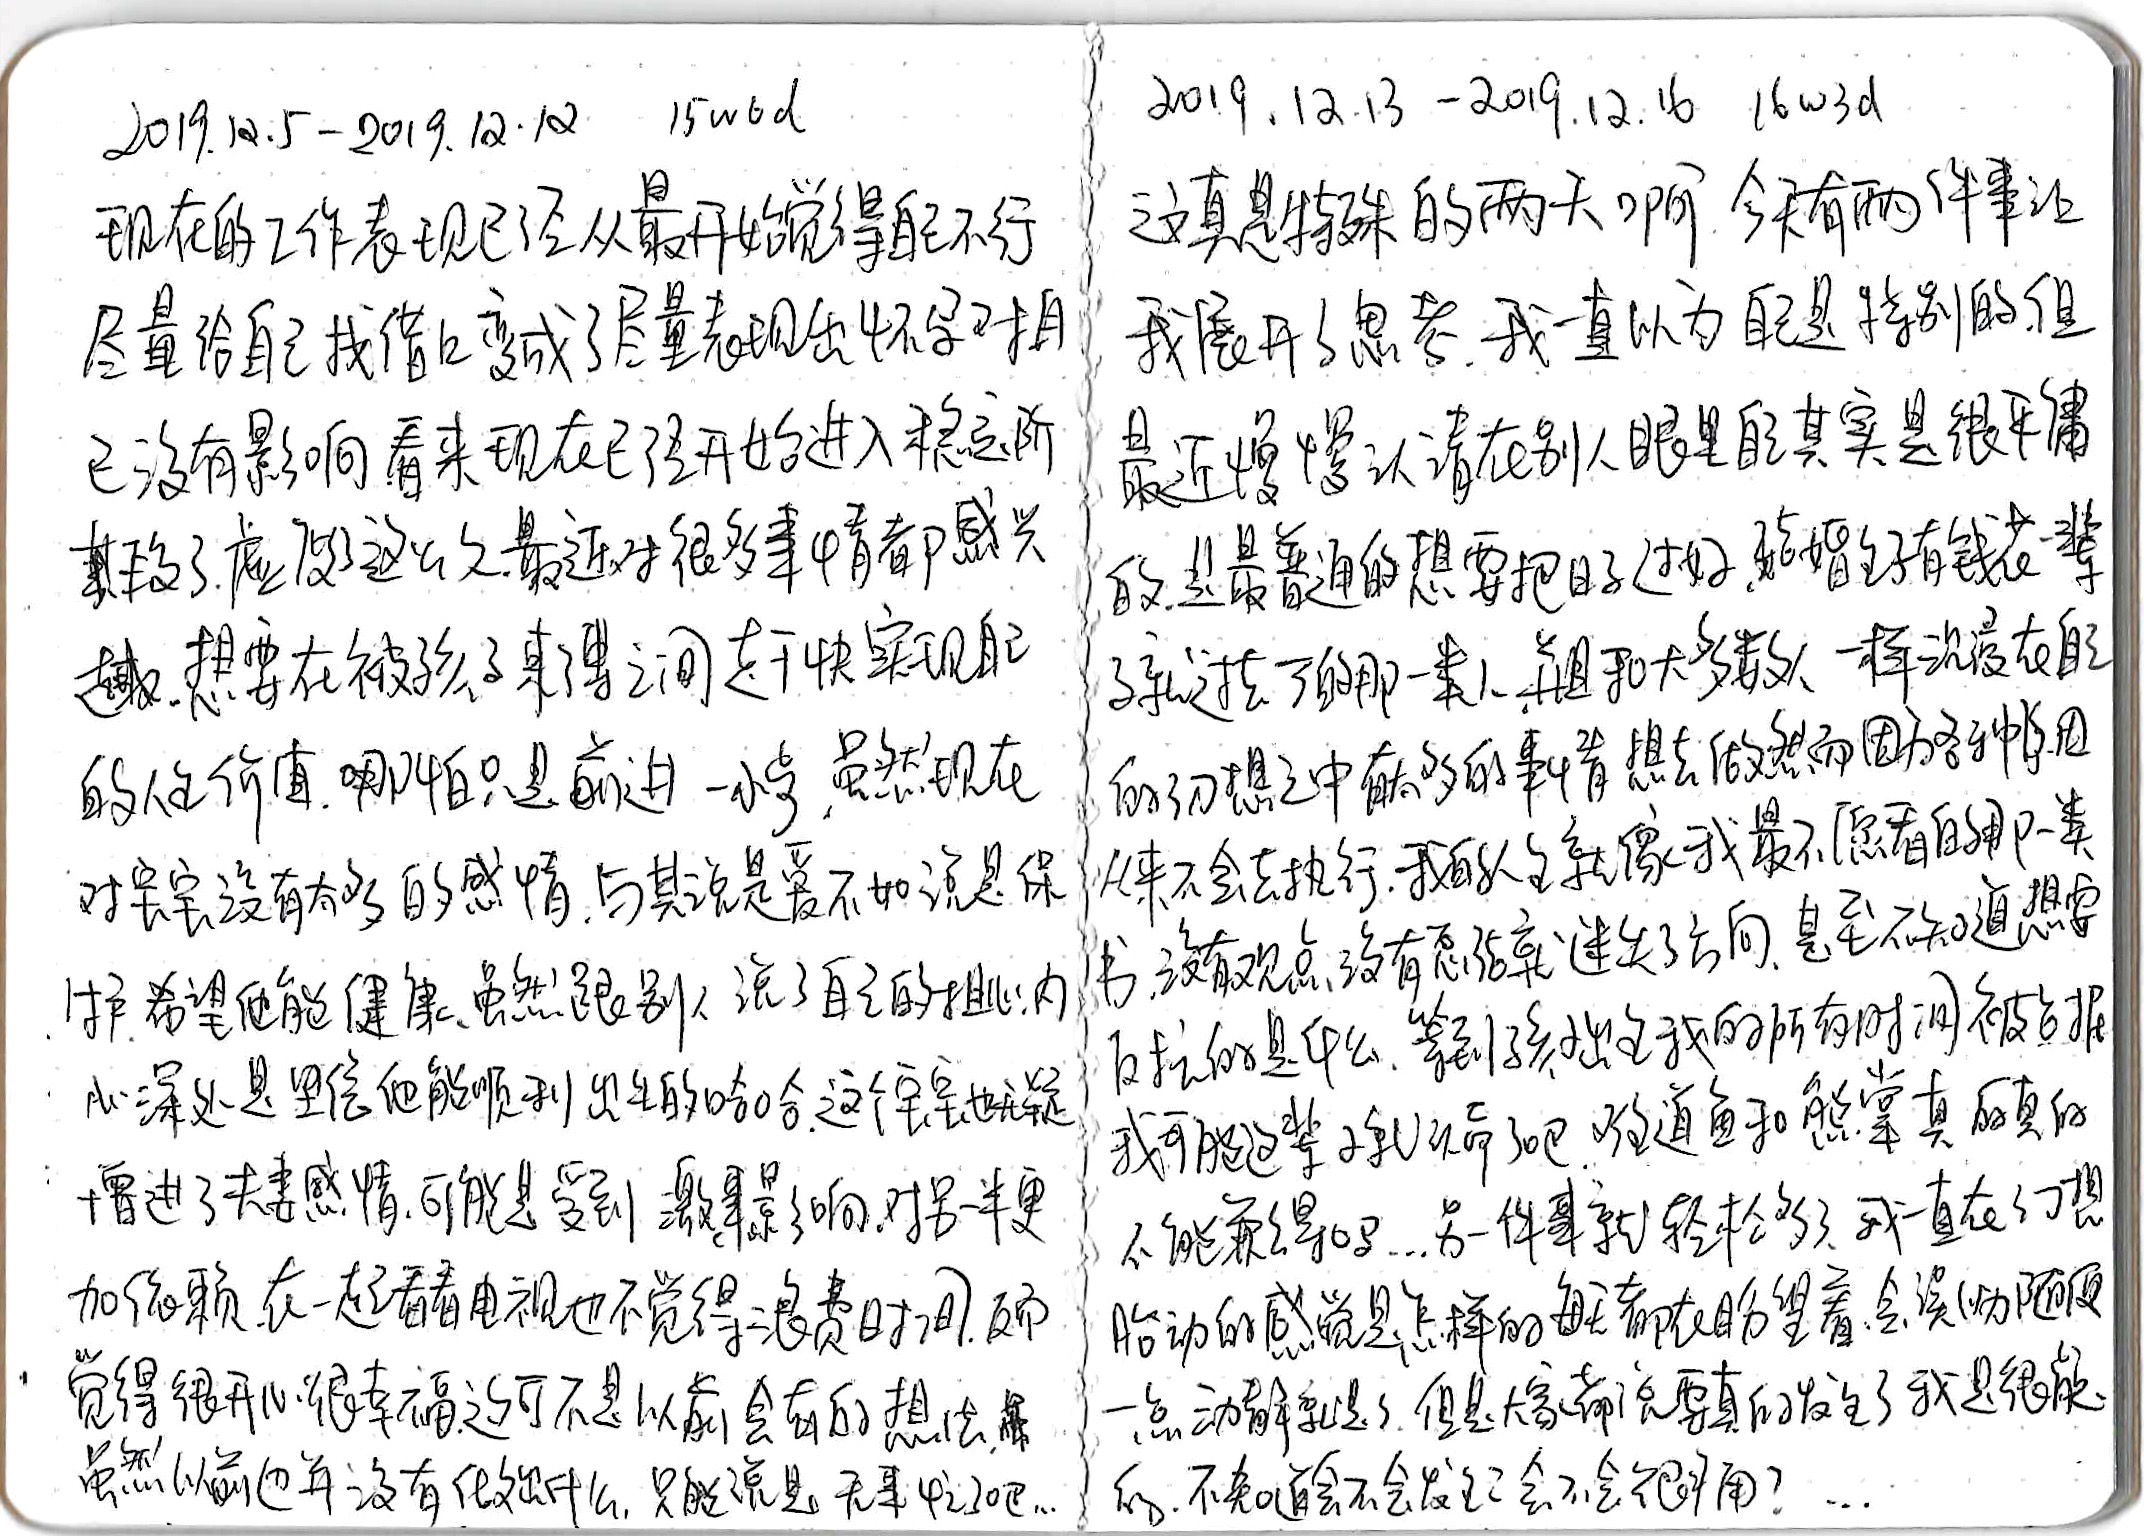 2019.12.5-2019.12.12 15w6d
现在的工作表现已经从最开始觉得自己不行
尽量给自己找借口变成了尽量表现出怀孕对自
己没有影响 看来现在已经开始进入稳定阶
段了.虚度了这么久.最近对很多事情都感兴
趣.想要在被孩子来得之间赶干快实现自己
的人生价值.哪怕只是前进一小步,虽然现在
对宝宝没有太多的感情.与其说是爱不如说是保
护.希望他能健康、虽然跟别人说了自己的担心.内
心深处是坚信他能顺利出生的哈哈.这个宝宝也无疑
增进了夫妻感情.可能是受到激素影响.对另一半更
加依赖.在一起看看电视也不觉得浪费时间.反而
觉得很开心很幸福.这可不是以前会有的想法.
虽然以前也并没有做出什么.只能说是无事忙了吧...
2019.12.13-2019.12.16 16w3d
这真是特殊的两天啊.今天有两件事让
我展开了思考.我一直以为自己是特别的.但
最近慢慢认清在别人眼里自己其实是很平庸
的.是最普通的想要把日子过好.结婚生子有钱花一辈
子就过去了的那一类人.并且和大多数人一样沉浸在自己
的幻想之中有太多的事情想去做然而因为各种原因
从来不会去执行.我的人生就像我最不愿看的那一类
书.没有观点没有总结就迷失了方向.甚至不知道想要
反抗的是什么.等到孩子出生我的所有时间被占据
我可能这辈子就认命了吧.难道鱼和熊掌真的真的
不能兼得吗...另一件事就轻松多了.我一直在幻想
胎动的感觉是怎样的每天都在盼望着.会误以为随便
一点动静就是了.但是大家都说要真的发生了我是很能
的.不知道会不会发生?会不会很有用?...